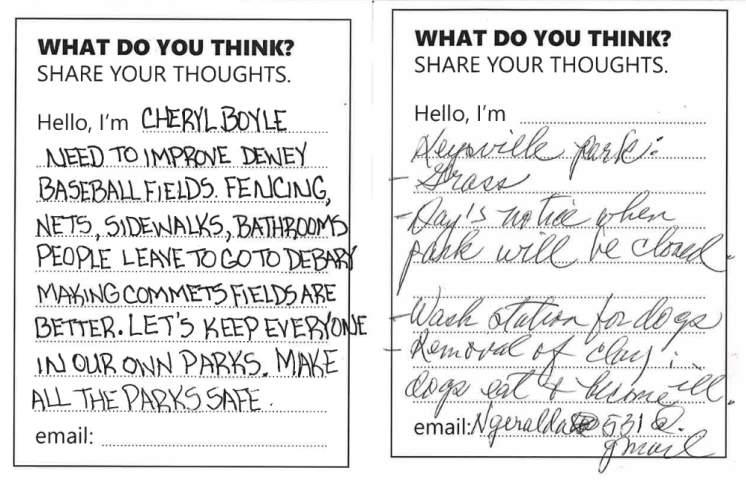 WHAT DO YOU THINK?
SHARE YOUR THOUGHTS.
Hello, I'm CHERYL BOYLE
NEED TO IMPROVE DEWEY
BASEBALL FIELDS. FENCING,
NETS, SIDEWALKS, BATHROOMS
PEOPLE LEAVE TO GO TO DEBARY
MAKING COMMETS FIELDS ARE
BETTER. LET'S KEEP EVERYONE
IN OUR OWN PARKS. MAKE
ALL THE PARKS SAFE.
email:
WHAT DO YOU THINK?
SHARE YOUR THOUGHTS.
Hello, I'm
Keysville park:
- Grass
- Day's notice when
park will be closed.
- Wash station for dogs
- Removal of clay:
dogs eat & become ill.
email: Ngeralda 531@.
gmail